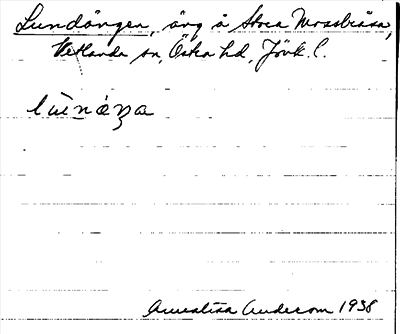 Lundängen, äng å Stora Mossbråna,
Vetlanda sn, Östra hd, Jönk. l.
lùnáŋa
Annalisa Anderson 1938